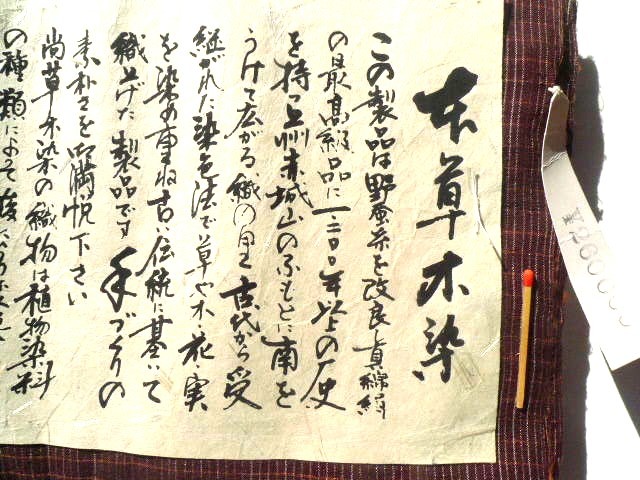 本草木染
この製品は野蚕糸を改良真綿絹
の最高級品に一二〇〇年以上の歴史
を持つ上州赤城山のふもとに南を
うけて広がる織の里古代から受
継がれた染色法で草や木・花・実
を染め重ね古い伝統に基いて
織上げた製品です手づくりの
素朴さを御満悦下さい
尚草木染の織物は植物染料
の種類によって